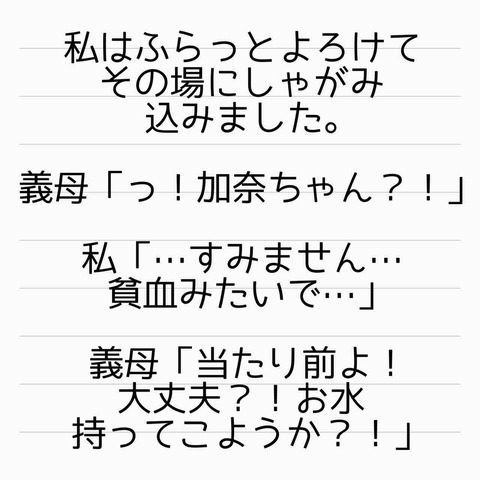 私はふらっとよろけて
その場にしゃがみ
込みました。
義母「っ！加奈ちゃん？！」
私「…すみません…
貧血みたいで…」
義母「当たり前よ！
大丈夫？！お水
持ってこようか？！」